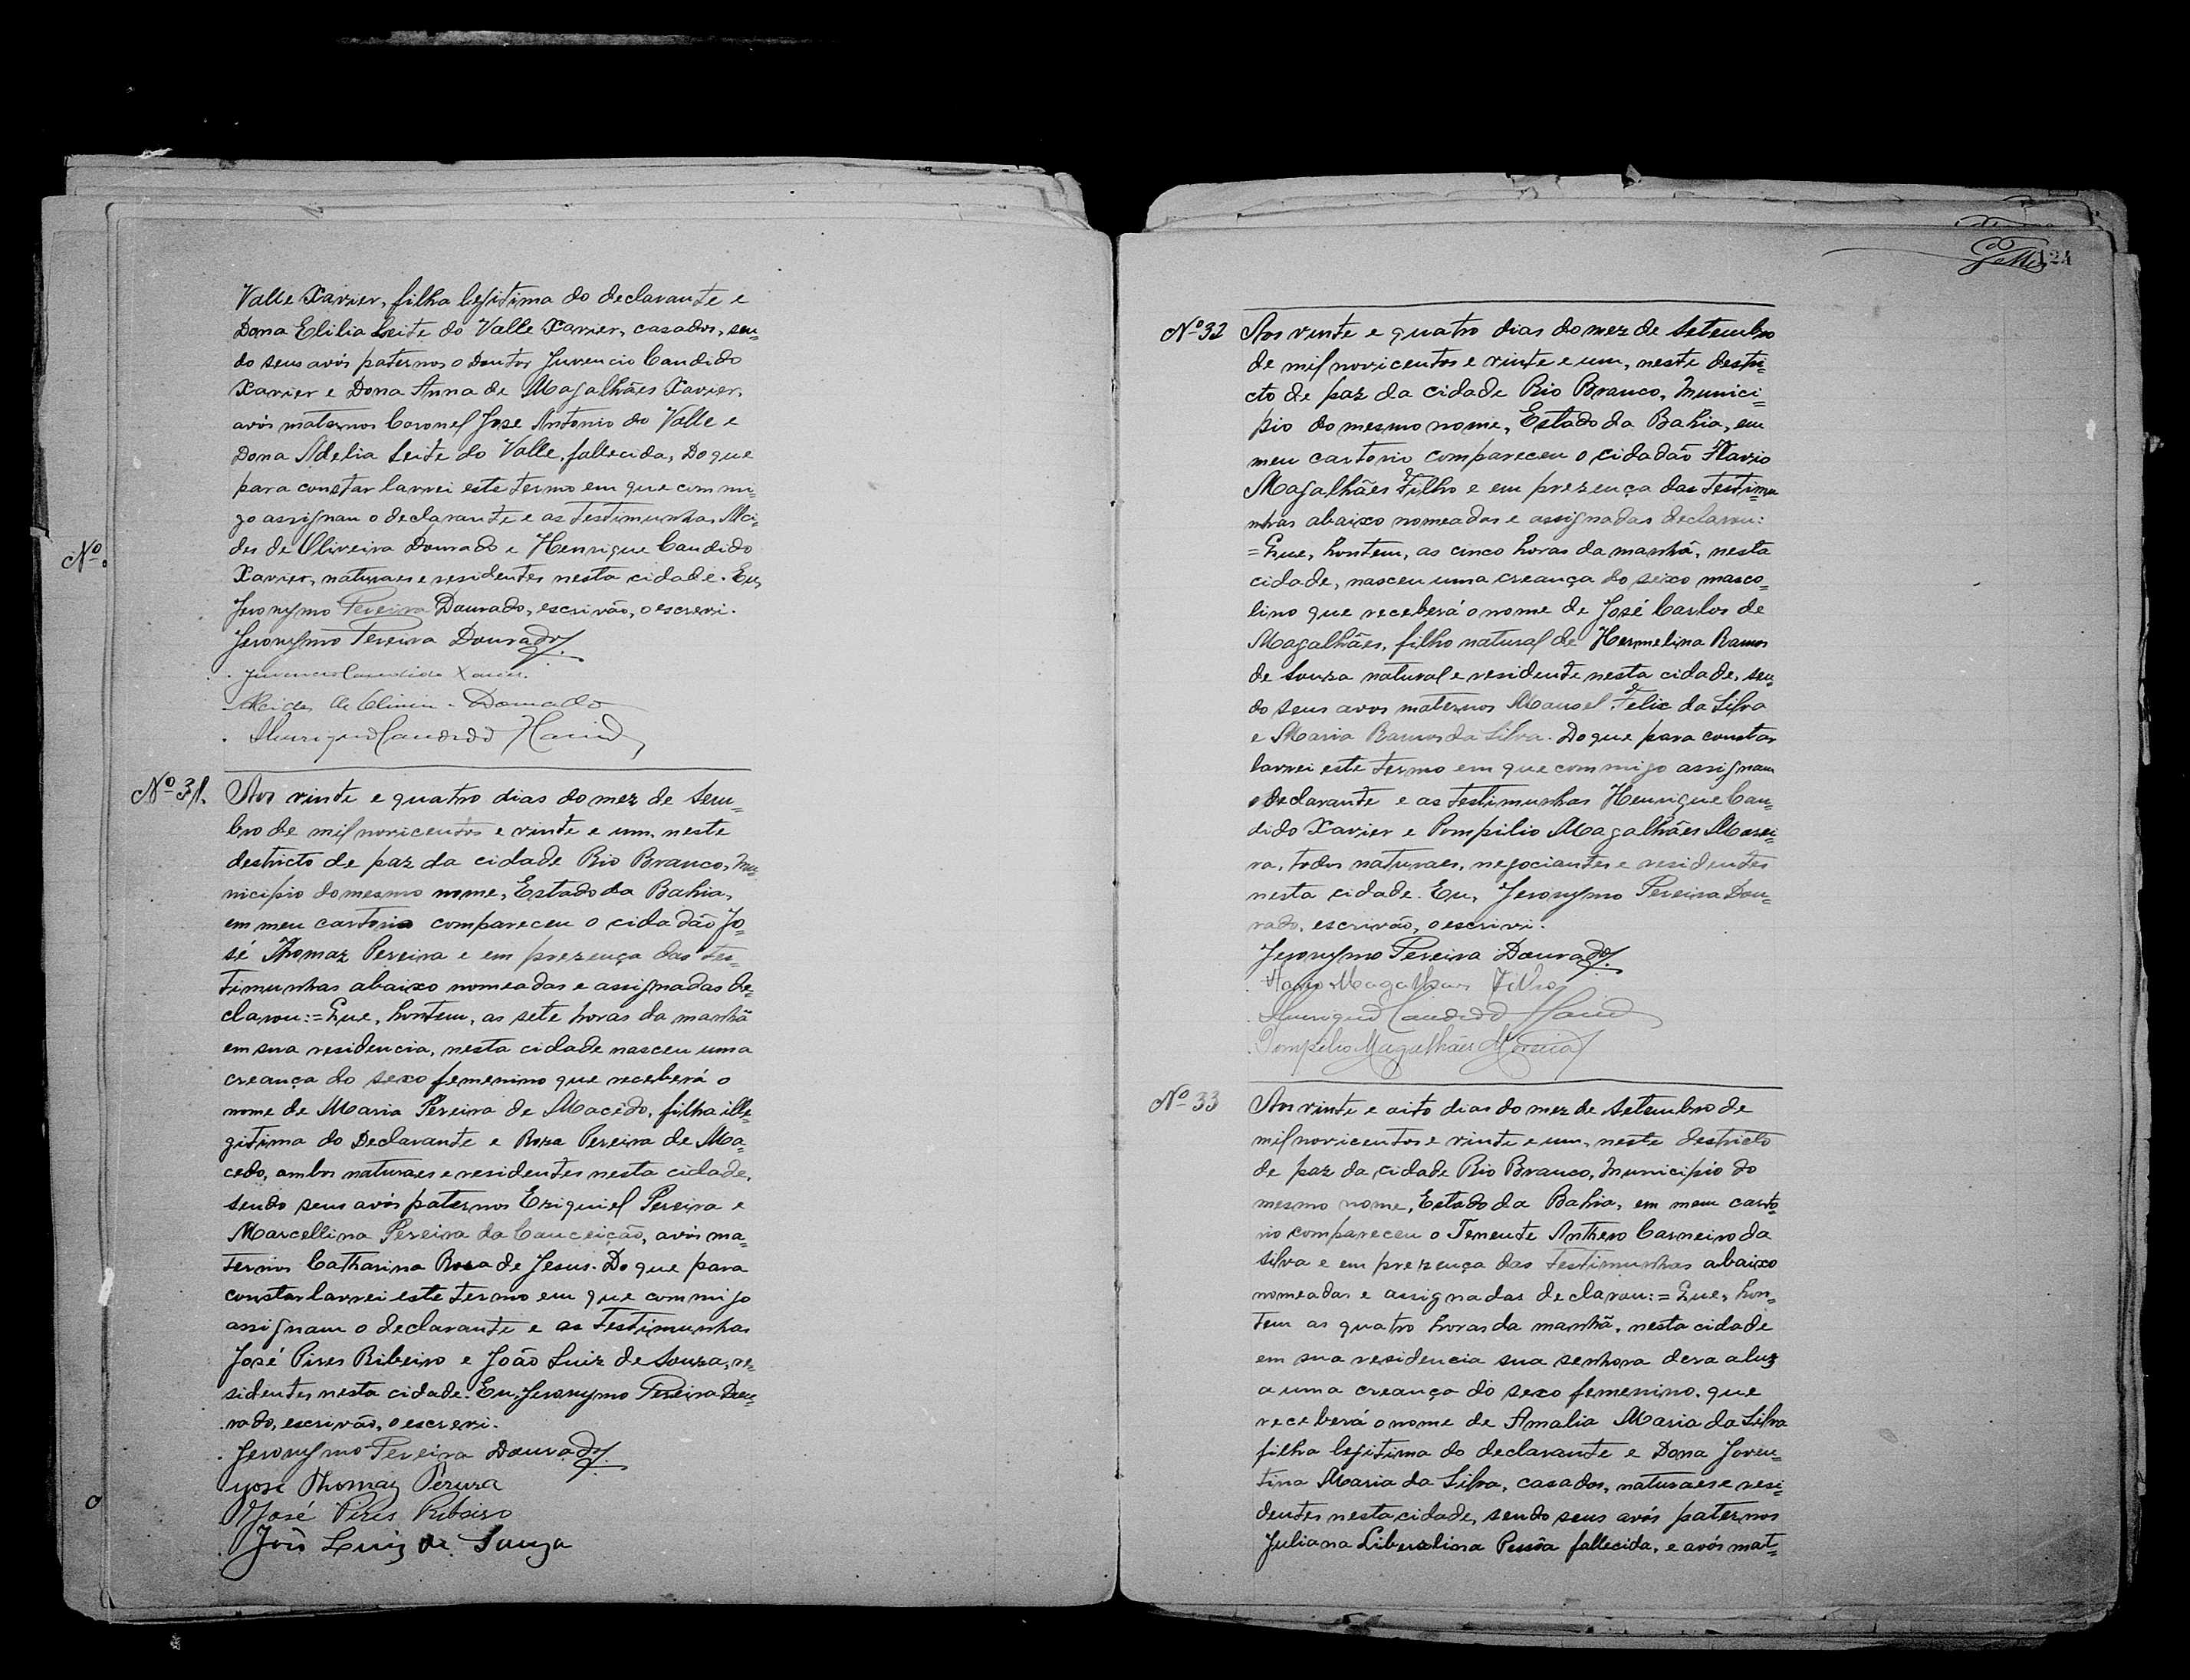 Valle Xavier, filha legitima do declarante e
Dona Elilia Leite do Valle Xavier, casados, sen=
do seus avós paternos o Doutor Juvencio Candido
Xavier e Dona Anna de Magalhães Xavier,
avós maternos Coronel Jose Antonio do Valle e
Dona Adelia Leite do Valle, fallecida, Do que
para constar lavrei este termo em que commi=
go assignam o declarante e as testimunhas Alci=
des de Oliveira Dourado e Henrique Candido
Xavier, naturaes e residentes nesta cidade. Eu,
Jeronymo Pereira Dourado, escrivão, o escrevi.
Jeronymo Pereira Dourado.
Juvencio Candido Xavier.
Alcides de Oliveira Dourado
Henrique Candido Xavier
Nº
Nº 31. Aos vinte e quatro dias do mez de Sem=
bro de mil novicentos e vinte e um, neste
destricto de paz da cidade Rio Branco, Mu=
nicipio do mesmo nome, Estado da Bahia,
em meu cartorio compareceu o cidadão Jo=
sé Thomaz Pereira e em prezença das tes=
timunhas abaixo nomeadas e assignadas de=
clarou:= Que, hontem, as sete horas da manhã
em sua residencia, nesta cidade nasceu uma
creança do sexo femenino que receberá o
nome de Maria Pereira de Macêdo, filha ille=
gitima do Declarante e Roza Pereira de Ma=
cedo, ambos naturaes e residentes nesta cidade,
sendo seus avós paternos Eziquiel Pereira e
Marcellina Pereira da Conceição, avós ma=
ternos Catharina Rosa de Jesus. Do que para
constar lavrei este termo em que commigo
assignam o declarante e as testimunhas
José Pires Ribeiro e João Luiz de Souza, re=
sidentes nesta cidade. Eu, Jeronymo Pereira Dou=
rado, escrivão, o escrevi.
Jeronymo Pereira Dourado.
José Thomaz Pereira
José Pires Ribeiro
João Luiz de Souza
124
Nº 32 Aos vinte e quatro dias do mez de Setembro
de mil novicentos e vinte e um, neste destri=
cto de paz da cidade Rio Branco, Munici=
pio do mesmo nome, Estado da Bahia, em
meu cartorio compareceu o cidadão Flavio
Magalhães Filho e em prezença das testimu
nhas abaixo nomeadas e assignadas declarou:
= Que, hontem, as cinco horas da manhã, nesta
cidade, nasceu uma creança do seixo masco=
lino que receberá o nome de José Carlos de
Magalhães, filho natural de Hermelina Ramos
de Souza natural e residente nesta cidade, sen=
do seus avos maternos Manoel Felix da Silva
e Maria Ramos da Silva. Do que para constar
lavrei este termo em que commigo assignam
o declarante e as testimunhas Henrique Can=
dido Xavier e Pompilio Magalhães Morei=
ra, todos naturaes, negociantes e residentes
nesta cidade. Eu, Jeronymo Pereira Dou=
rado, escrivão, o escrivi.
Jeronymo Pereira Dourado.
Flavio Magalhães Filho
Henrique Candido Xavier
Pompilio Magalhães Moreira
Nº 33 Aos vinte e oito dias do mez de Setembro de
mil novicentos e vinte e um, neste destricto
de paz da cidade Rio Branco, Municipio do
mesmo nome, Estado da Bahia, em meu carto=
rio compareceu o Tenente Anthero Carneiro da
Silva e em prezença das testimunhas abaixo
nomeadas e assignadas declarou:= Que, hon=
tem as quatro horas da manhã, nesta cidade
em sua residencia sua senhora dera a luz
a uma creança do sexo femenino, que
receberá o nome de Amalia Maria da Silva
filha legitima do declarante e Dona Joven=
tina Maria da Silva, casados, naturaes e resi=
dentes nesta cidade, sendo seus avós paternos
Juliana Liburalina Pessôa fallecida, e avós mat=